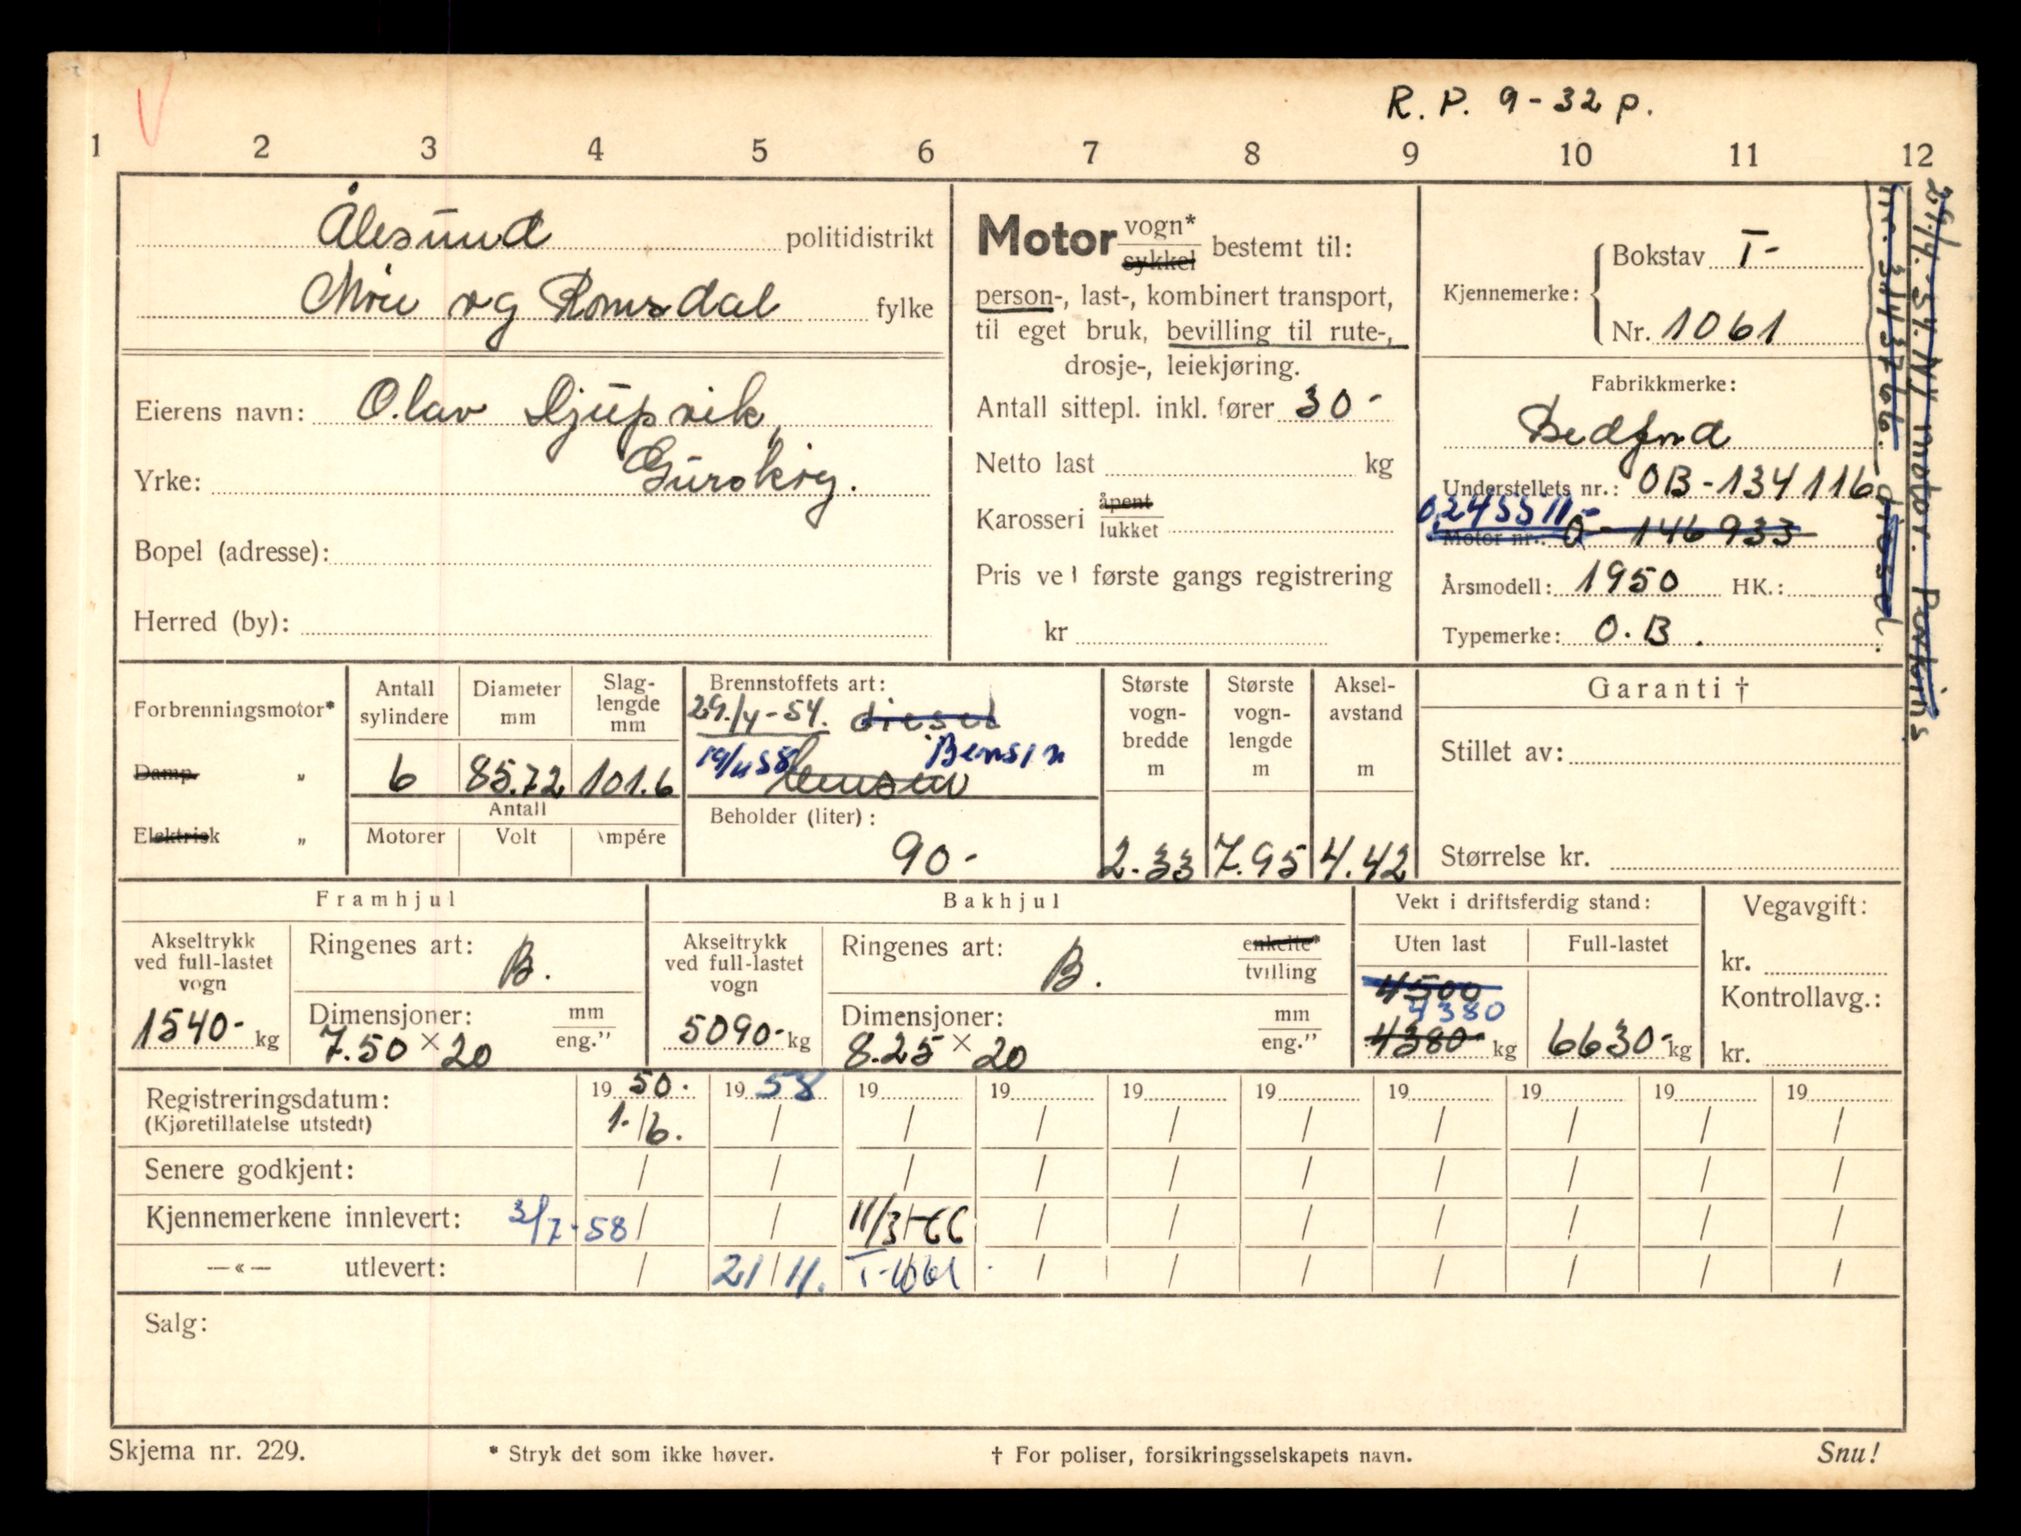 R. P. 9-32 p.
1 2 3 4 5 6 7 8 9 10 11 12
Ålesund politidistrikt
Møre og Romsdal fylke
Eierens navn: Olav Djupvik,
Yrke: Gurskøy.
Bopel (adresse):
Herred (by):
Motor vogn* sykkel bestemt til:
person-, last-, kombinert transport,
til eget bruk, bevilling til rute-,
drosje-, leiekjøring.
Antall sittepl. inkl. fører 30-
Netto last kg
Karosseri åpent lukket
Pris ved første gangs registrering
kr
Kjennemerke: Bokstav T-
Nr. 1061
Fabrikkmerke:
Bedford
Understellets nr.: OB-134116
0,245511-
Motor nr.: O-146933
Årsmodell: 1950 HK.:
Typemerke: O.B.
29/4.-54. Ny motor. Perkins
nr. 3143766. diesel.
Forbrenningsmotor*
Damp „
Elektrisk „
Antall sylindere
6
Diameter mm
85.72
Slaglengde mm
101.6
Antall
Motorer Volt Ampére
Brennstoffets art:
29./4-54. diesel
19/11 58 Bensin
bensin
Beholder (liter):
90-
Største vognbredde m
2.33
Største vognlengde m
7.95
Akselavstand m
4.42
Garanti †
Stillet av:
Størrelse kr.
Framhjul
Akseltrykk ved full-lastet vogn
1540- kg
Ringenes art: B.
Dimensjoner: mm eng."
7.50 × 20
Bakhjul
Akseltrykk ved full-lastet vogn
5090- kg
Ringenes art: B. enkelte* tvilling
Dimensjoner: mm eng."
8.25 × 20
Vekt i driftsferdig stand:
Uten last
4500
4380
4380- kg
Full-lastet
6630- kg
Vegavgift:
kr.
Kontrollavg.:
kr.
Registreringsdatum: 19 50. 19 58 19 19 19 19 19 19 19 19
(Kjøretillatelse utstedt) 1./6.
Senere godkjent:
Kjennemerkene innlevert: 3/7-58 11/3-66
—«— utlevert: 21/11. T-1061
Salg:
Skjema nr. 229.
* Stryk det som ikke høver.
† For poliser, forsikringsselskapets navn.
Snu!